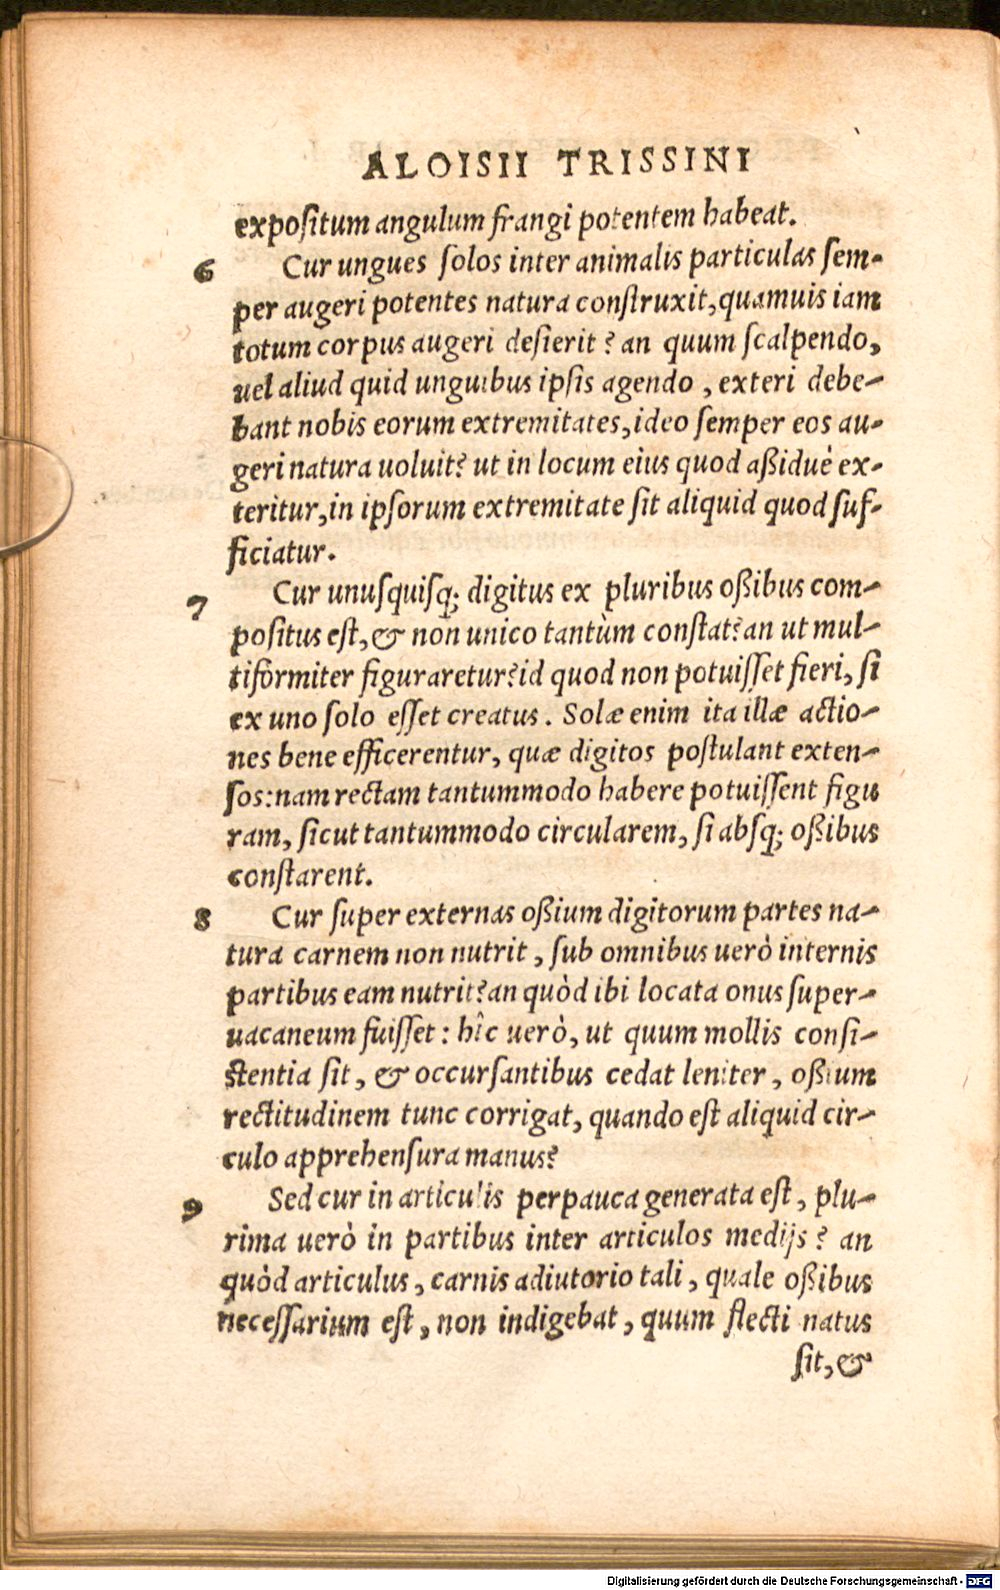 ALOISII TRISSINI
expositum angulum frangi potentem habeat.
6 Cur ungues ſolos inter animalis particulas ſem-
per augeri potentes natura conſtruxit, quamuis iam
totum corpus augeri deſierit? an quum ſcalpendo,
uel aliud quid unguibus ipſis agendo, exteri debe-
bant nobis eorum extremitates, ideo ſemper eos au-
geri natura uoluit? ut in locum eius quod aßiduè ex-
teritur, in ipſorum extremitate ſit aliquid quod ſuf-
ficiatur.
7 Cur unuſquiſq; digitus ex pluribus oßibus com-
poſitus eſt, & non unico tantùm conſtat? an ut mul-
tiformiter figuraretur? id quod non potuiſſet fieri, ſi
ex uno ſolo eſſet creatus. Solæ enim ita illæ actio-
nes bene efficerentur, quæ digitos poſtulant exten-
ſos: nam rectam tantummodo habere potuiſſent figu
ram, ſicut tantummodo circularem, ſi abſq; oßibus
conſtarent.
8 Cur ſuper externas oßium digitorum partes na-
tura carnem non nutrit, ſub omnibus uerò internis
partibus eam nutrit? an quòd ibi locata onus ſuper-
uacaneum fuiſſet: hîc uerò, ut quum mollis conſi-
ſtentia ſit, & occurſantibus cedat leniter, oßium
rectitudinem tunc corrigat, quando eſt aliquid cir-
culo apprehenſura manus?
9 Sed cur in articulis perpauca generata eſt, plu-
rima uerò in partibus inter articulos medijs? an
quòd articulus, carnis adiutorio tali, quale oßibus
neceſſarium eſt, non indigebat, quum flecti natus
ſit, &
Digitalisierung gefördert durch die Deutsche Forschungsgemeinschaft - DFG